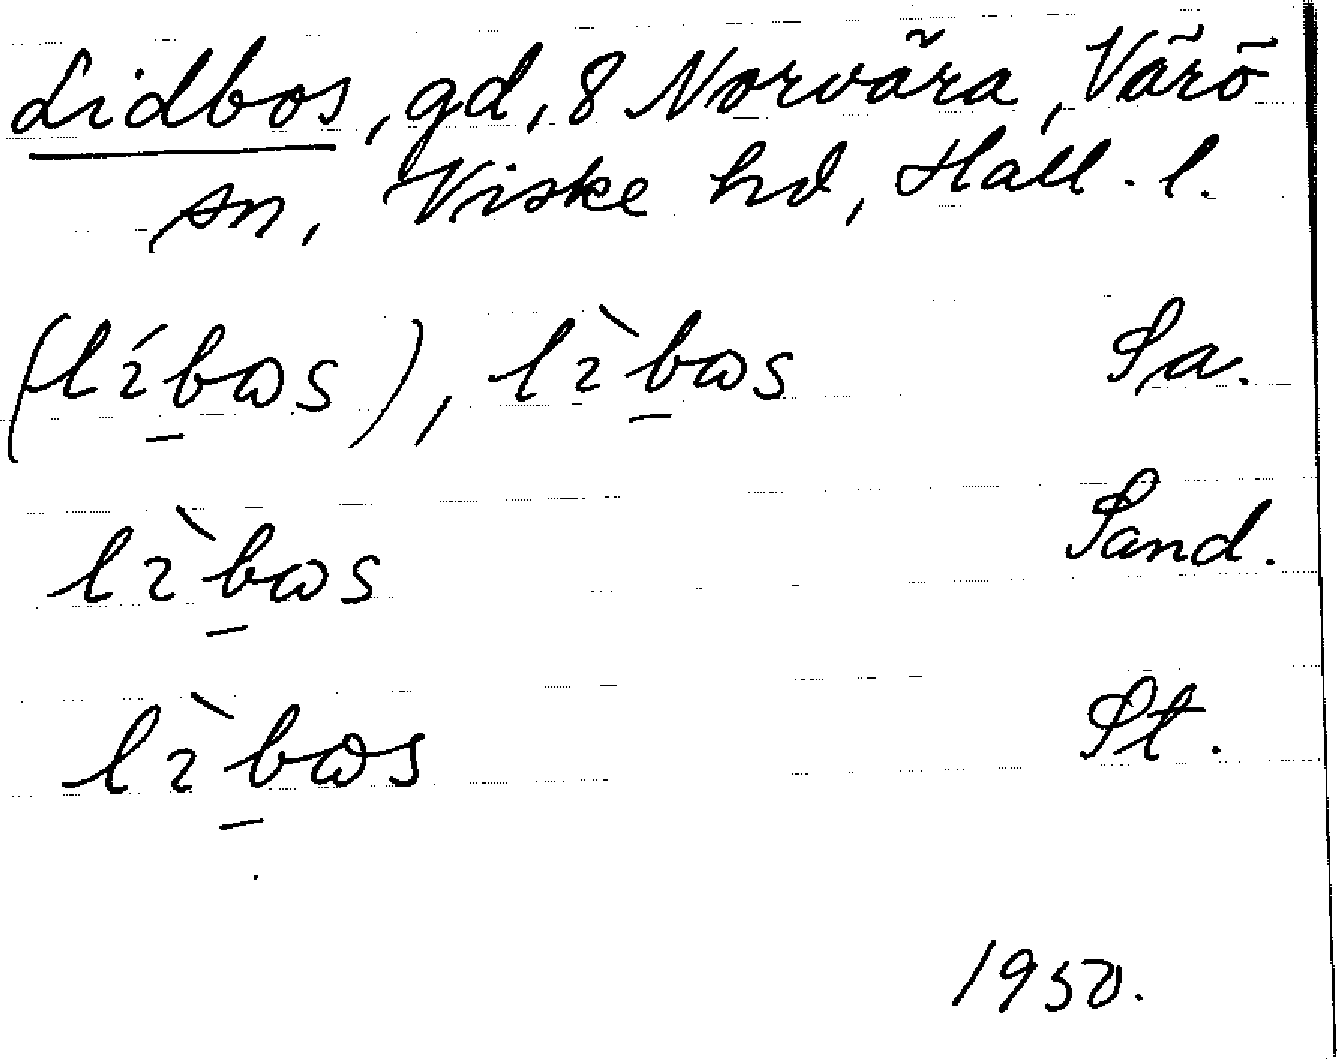 Lidbos, gd, 8 Norvära, Värö
sn, Viske hd, Hall. l.
(lɩ́b̲ɷs), lɩ̀b̲ɷs Sa.
lɩ̀b̲ɷs Sand.
lɩ̀b̲ɷs St.
1950.